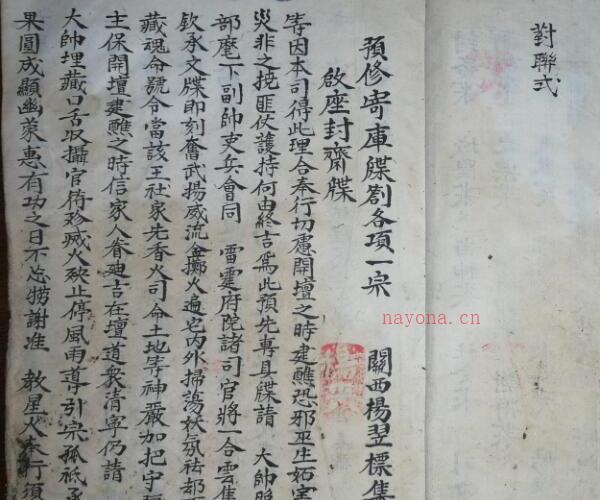 對聯式
預修寄庫牒劄各項一宗　關西楊翌標集
啟座封齋牒
等因本司得此理合奉行切慮開壇之時建醮恐邪巫生妬害
災非之撓匪仗護持何由終吉爲此預先專具牒請　大帥
部麾下副帥吏兵會同　雷霆府院諸司官將一合雲集
欽承文牒即刻奮武揚威流金擲火遍宅內外掃蕩妖氛祛却
藏魂命號令當該王社家先香火司命土地等神嚴加把守
主保開壇建醮之時信家人眷迪吉在壇道衆清寧仍請
大帥埋藏口舌收攝官符殄滅火殃止停風雨導引宗孤祇
果圓成顯幽蒙惠有功之日不忘犒謝准　教星火奉行須
nayona.cn